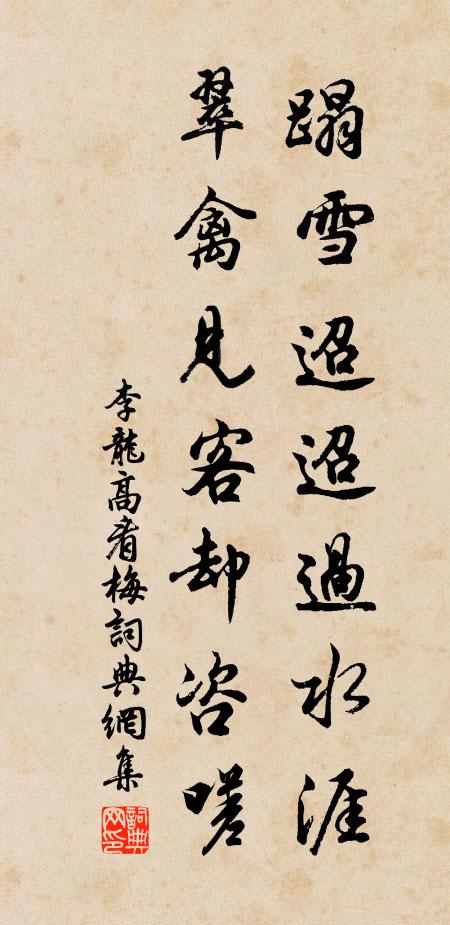 蹋雪迢迢過水涯
翠禽見客却咨嗟
李龍高看梅詞典網集
詞典网印